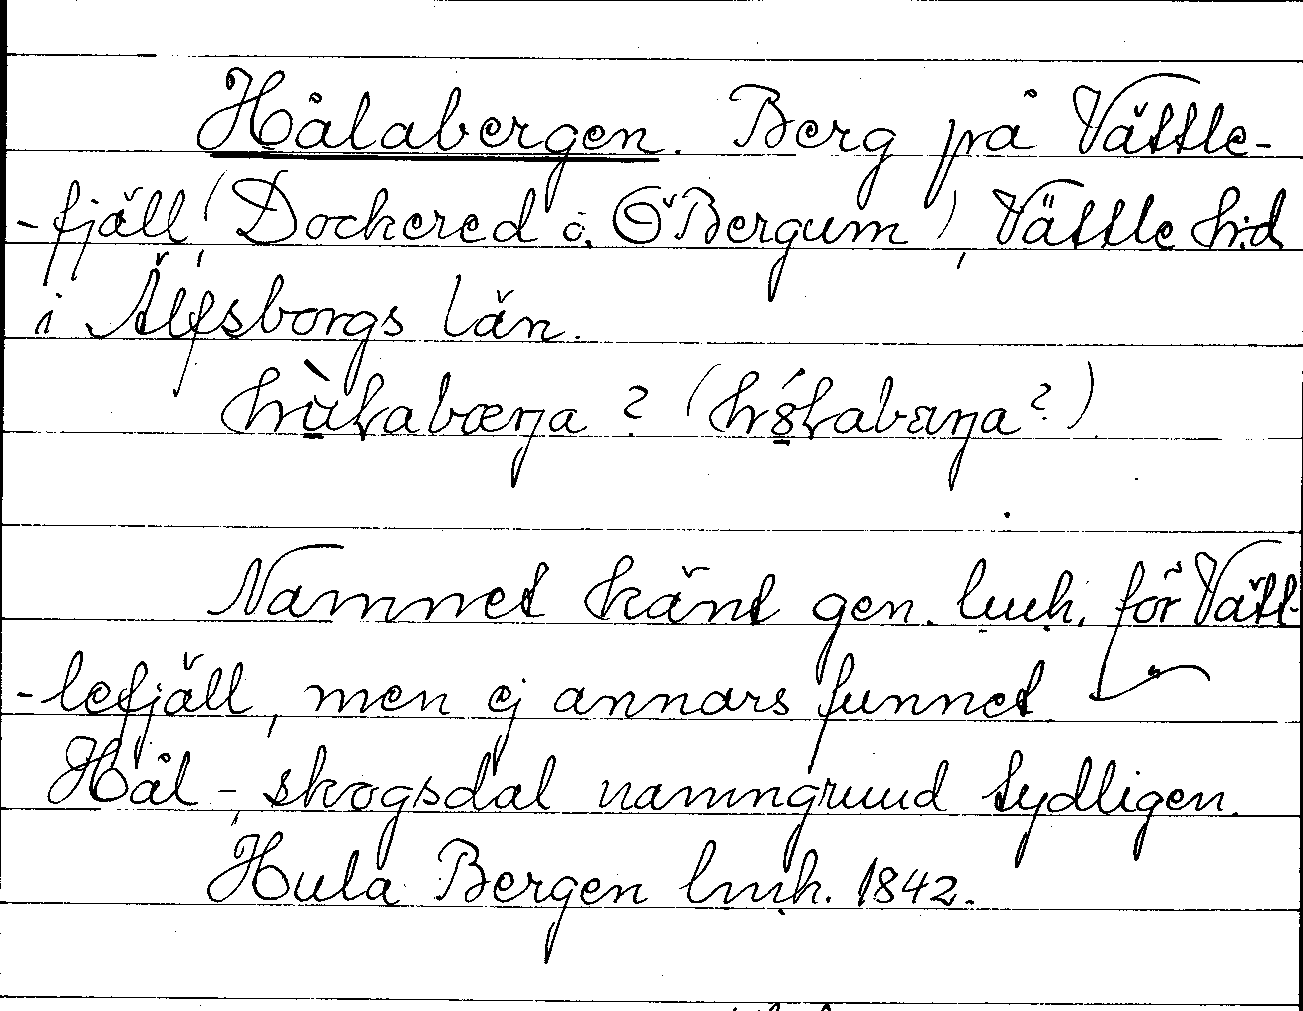 Hålabergen. Berg på Vättle-
-fjäll (Dockered o. Ö Bergum), Vättle hd
i Älfsborgs län.
hùlabæŋa ? (hó̤labæŋa ?)
Namnet känt gen. lmk. för Vätt-
-lefjäll, men ej annars funnet
Hål -, skogsdal namngruud tydligen.
Hula Bergen lmk. 1842.